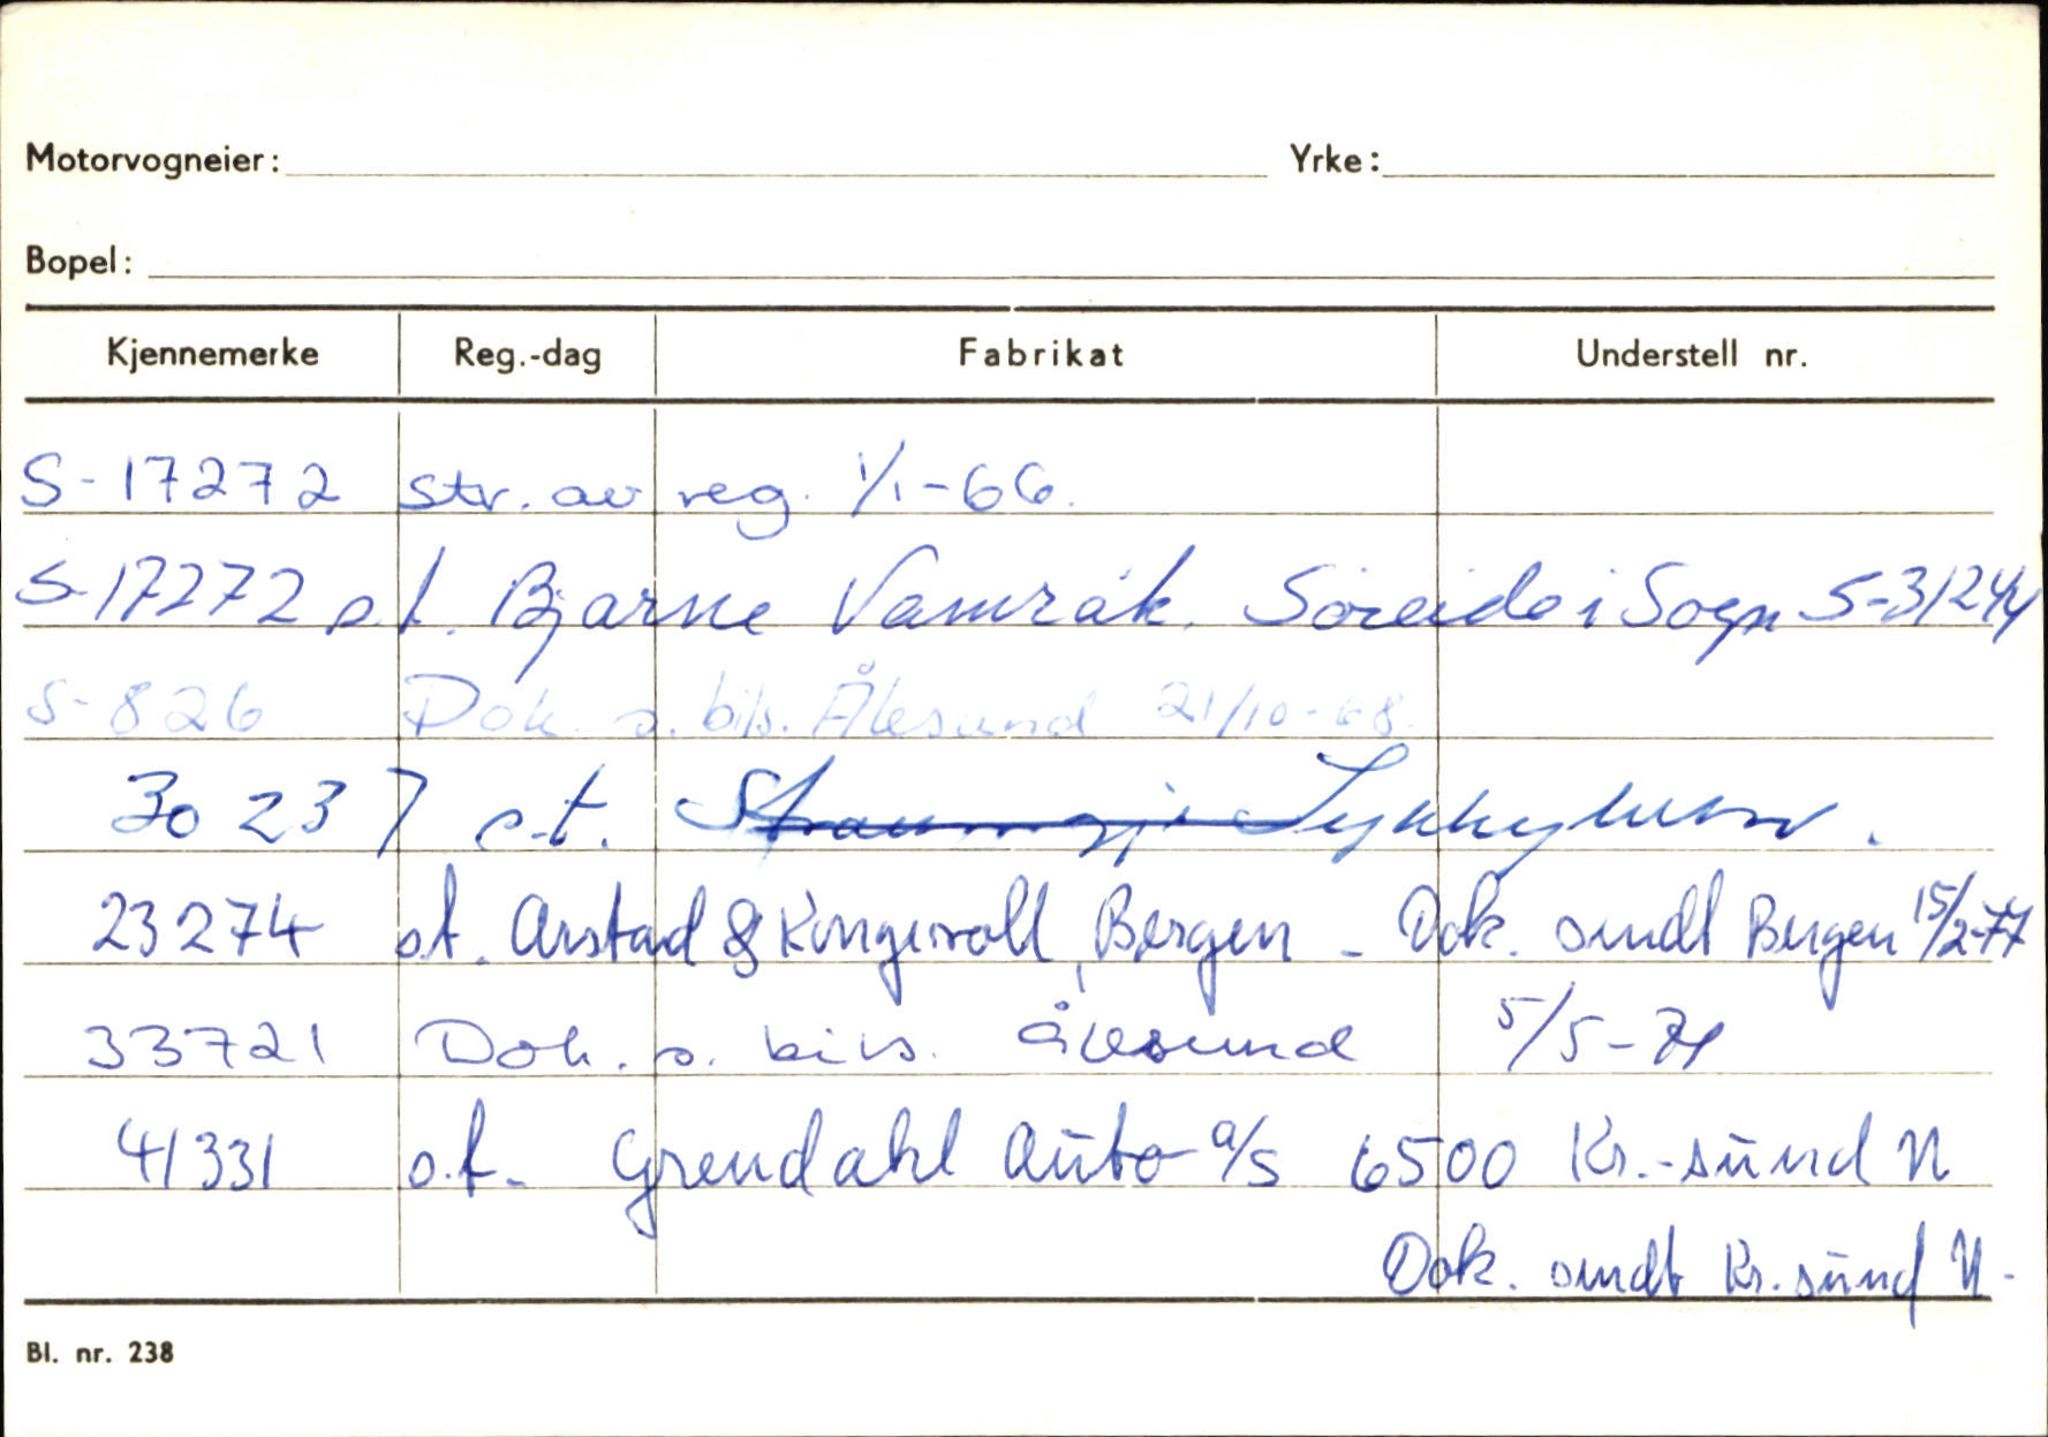 Motorvogneier: Yrke:
Bopel:
Kjennemerke Reg.-dag Fabrikat Understell nr.
S-17272 str. av reg. 1/1-66.
S-17272 o.t. Bjarne Vamråk. Söreide i Sogn S-31244
S-826 Dok s. bils. Ålesund 21/10-68.
30237 o.t. Straumsgj. Sykkylven.
23274 o.t. Arstad & Kongsvoll, Bergen - Dok. sendt Bergen 15/2-77
33721 Dok. s. bils. Ålesund 5/5-71
41331 o.t. Grendahl Auto a/s 6500 Kr.-sund N
Dok. sendt Kr.sund N.
Bl. nr. 238